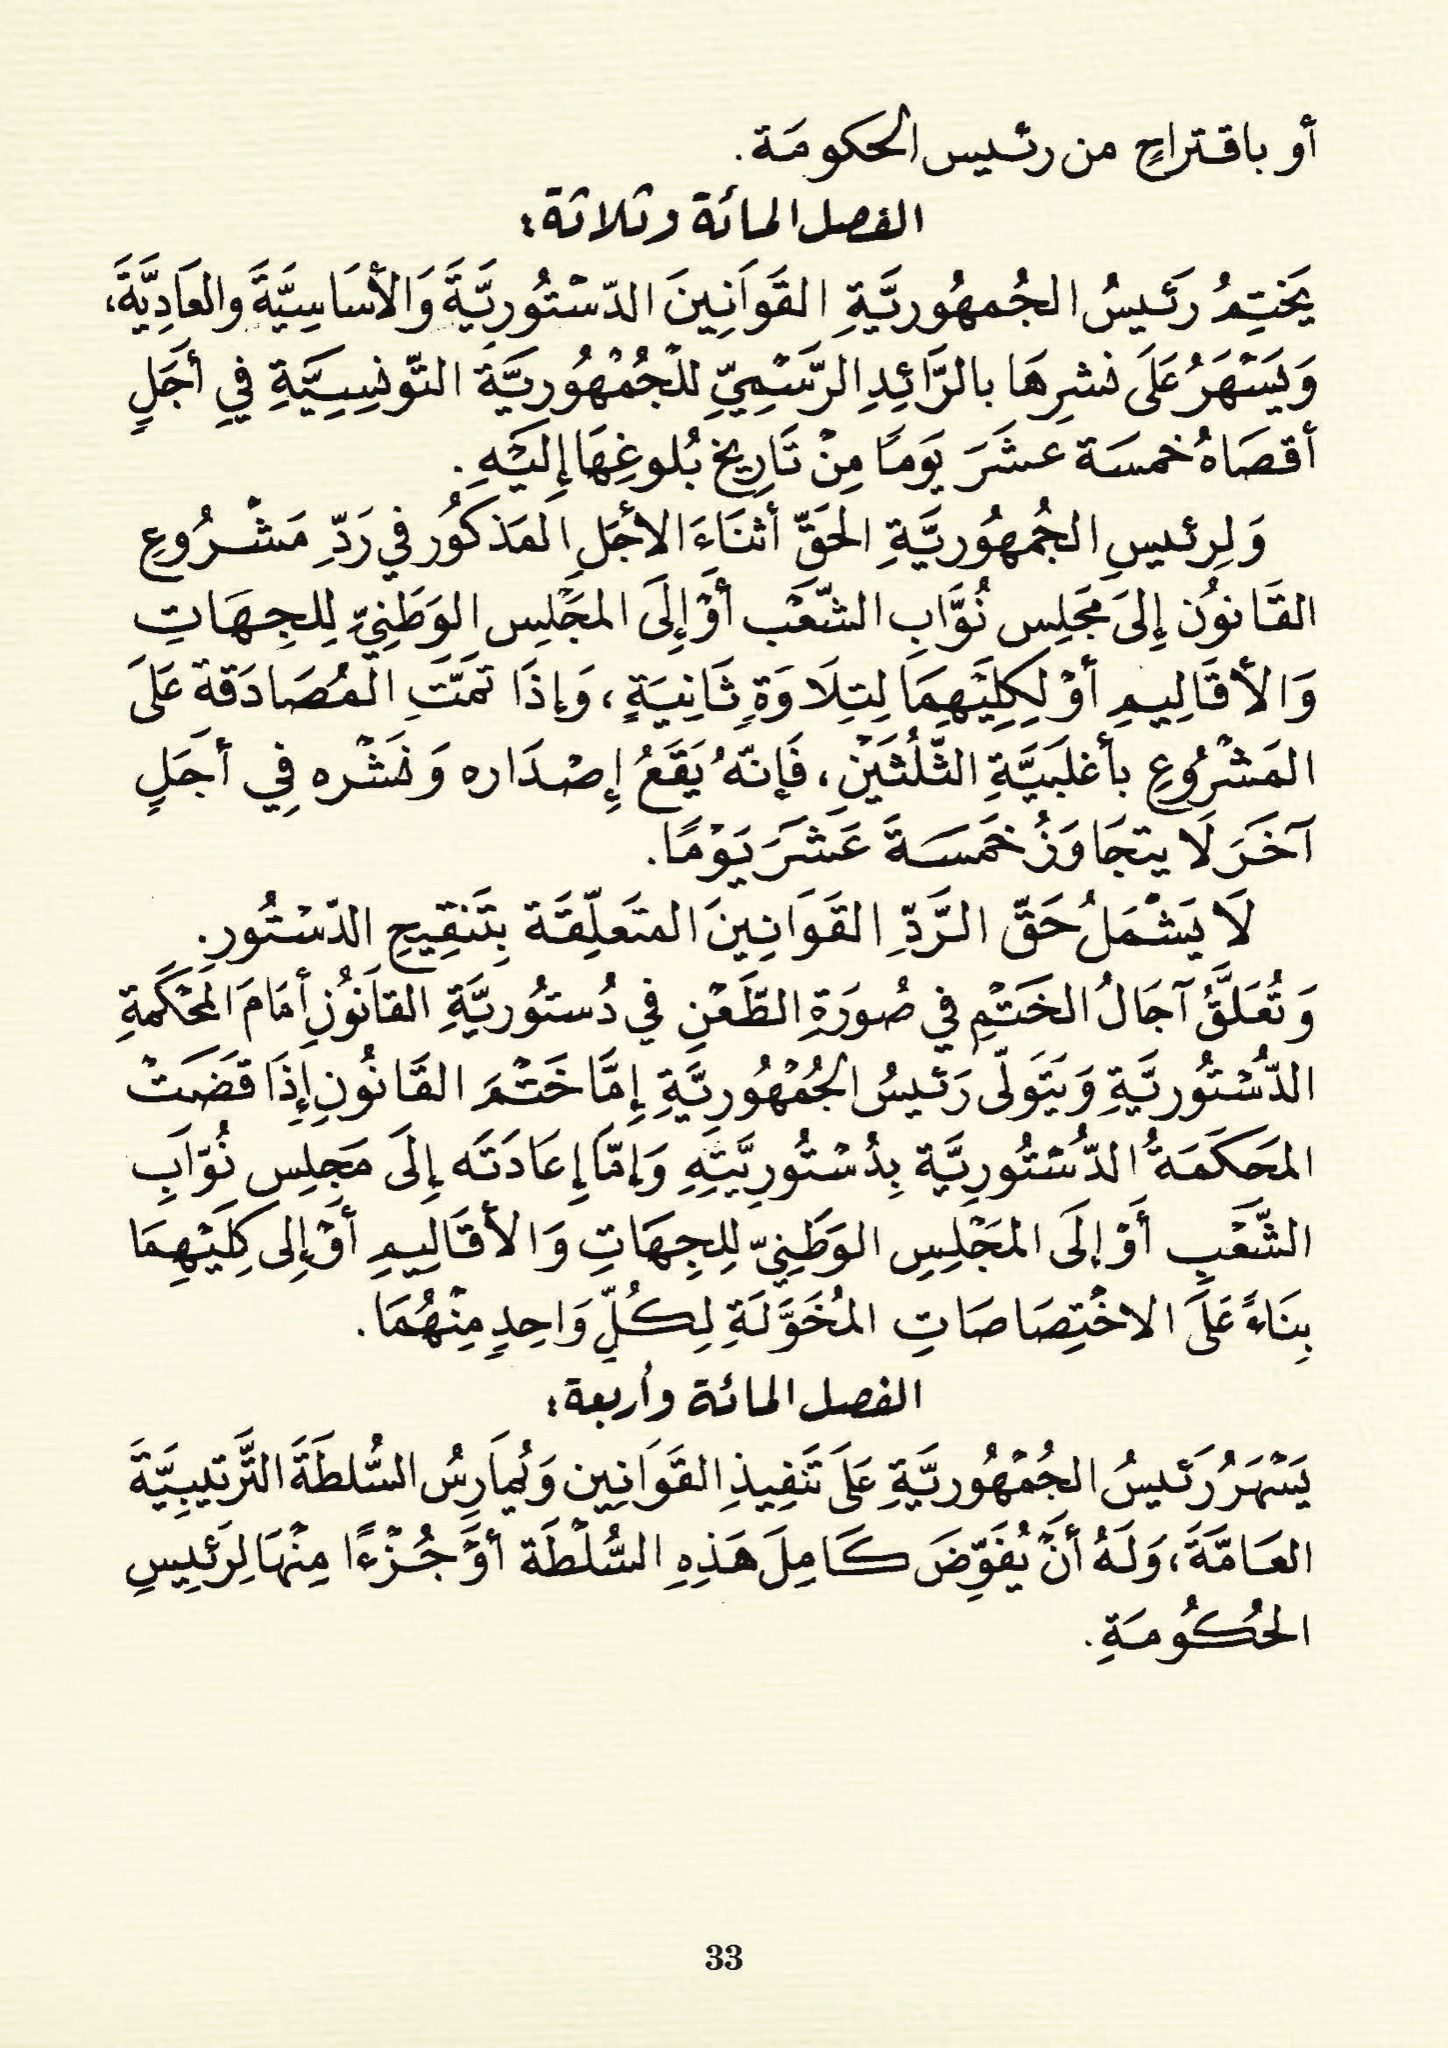 أو باقتراحٍ من رئيس الحكومَة.
الفصل المائة وثلاثة:
يَختِمُ رَئيسُ الجُمهُوريَّةِ القَوَانِينَ الدّسْتُورِيَّةَ وَالأسَاسِيَّةَ والعَادِيَّةَ،
وَيَسْهَرُ عَلَى نشرِهَا بالرَّائِدِ الرَّسْمِيِّ للْجُمْهُورِيَّة التّونِسِيَّةِ فِي أجَلٍ
أقصَاهُ خمسَة عشَرَ يَومًا مِنْ تَارِيخ بُلوغِهَا إِليَهِ.
وَلِرئيسِ الجُمهُوريَّةِ الحَقّ أثنَاءَ الأجَلِ المَذكُور في رَدِّ مَشْرُوعِ
القَانُون إِلىَ مَجَلِس نُوَّابِ الشّعَب أوْ إِلَى المجَلِس الوَطَنِيِّ لِلجِهَاتِ
وَالأقَالِيمِ أوْ لِكِلَيَهِمَا لِتِلَاوَةٍ ثَانِيَةٍ، وَإذَا تَمَّتَ المُصَادَقة عَلَى
المَشْرُوعِ بأغلَبيَّةِ الثّلُثَيْنِ، فَإنّهُ يَقَعُ إِصْدَاره وَنَشْره فِي أجَلٍ
آخَرَ لَا يتجَاوَزُ خَمَسَةَ عَشَرَ يَوْمًا.
لَا يَشْمَلُ حَقّ الرَّدِّ القَوَانِينَ المتَعَلّقَة بِتَنقِيحِ الدّسْتُورِ.
وَتُعَلَّقُ آجَالُ الختَمِ في صُورَةِ الطّعَنِ في دُستوُريَّةِ القانُونِ أمَامَ المَحْكَمةِ
الدُّسْتُوريَّةِ وَيَتَولّى رَئيسُ الجُمْهُورِيَّةِ إِمَّا خَتَمَ القَانُونِ إِذَا قَضَتْ
المَحَكَمَةُ الدُّسْتُورِيَّة بِدُسْتُورِيَّتِهِ وَإمّا إِعَادَتَه إِلَى مَجَلِسِ نُوّابِ
الشّعَبِ أوْ إلَى المجَلِسِ الوَطَنِيّ لِلجِهَاتِ وَالأقَالِيمِ أوْ إِلى كِلَيْهِمَا
بِنَاءً عَلَى الاخْتِصَاصَاتِ المُخَوَّلَةِ لِكُلِّ وَاحِدٍ مِنْهُمَا.
الفصل المائة وأربعة:
يَسْهَرُ رَئيسُ الجُمْهُوريَّةِ عَلَى تَنفِيذِ القَوَانِين وَيُمارِسُ السُّلطَةَ التَّرتيبِيَّةَ
العَامَّةَ، وَلَهُ أنْ يُفَوِّضَ كَامِلَ هَذِهِ السُّلْطَة أوْ جُزْءًا مِنْهَا لِرَئِيسِ
الحُكُومَةِ.
33